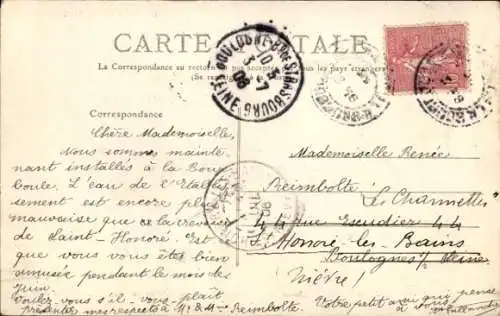 CARTE POSTALE
La Correspondance au recto n'est pas acceptée par tous les pays étrangers
(Se
BOULOGNE-BD DE STRASBOURG
SEINE
10
3-7
06
Correspondance
Chère Mademoiselle,
Nous sommes mainte-
nant installés à la Bour-
boule. L'eau de l'Etablis
sement est encore plus
mauvaise que ce
de Saint-Honoré. Est
que vous vous êtes bien
amusée pendant le mois de
Juin.
Voulez-vous s'il-vous-plaît
présenter mes respects à M. & Mme Reimbolte.
Mademoiselle Renée
Reimbolte "Les Charmettes"
44 Rue Escudier 44
St Honoré-les-Bains
Boulogne s/ Seine
Nièvre
Votre petit ami qui pense
à vous